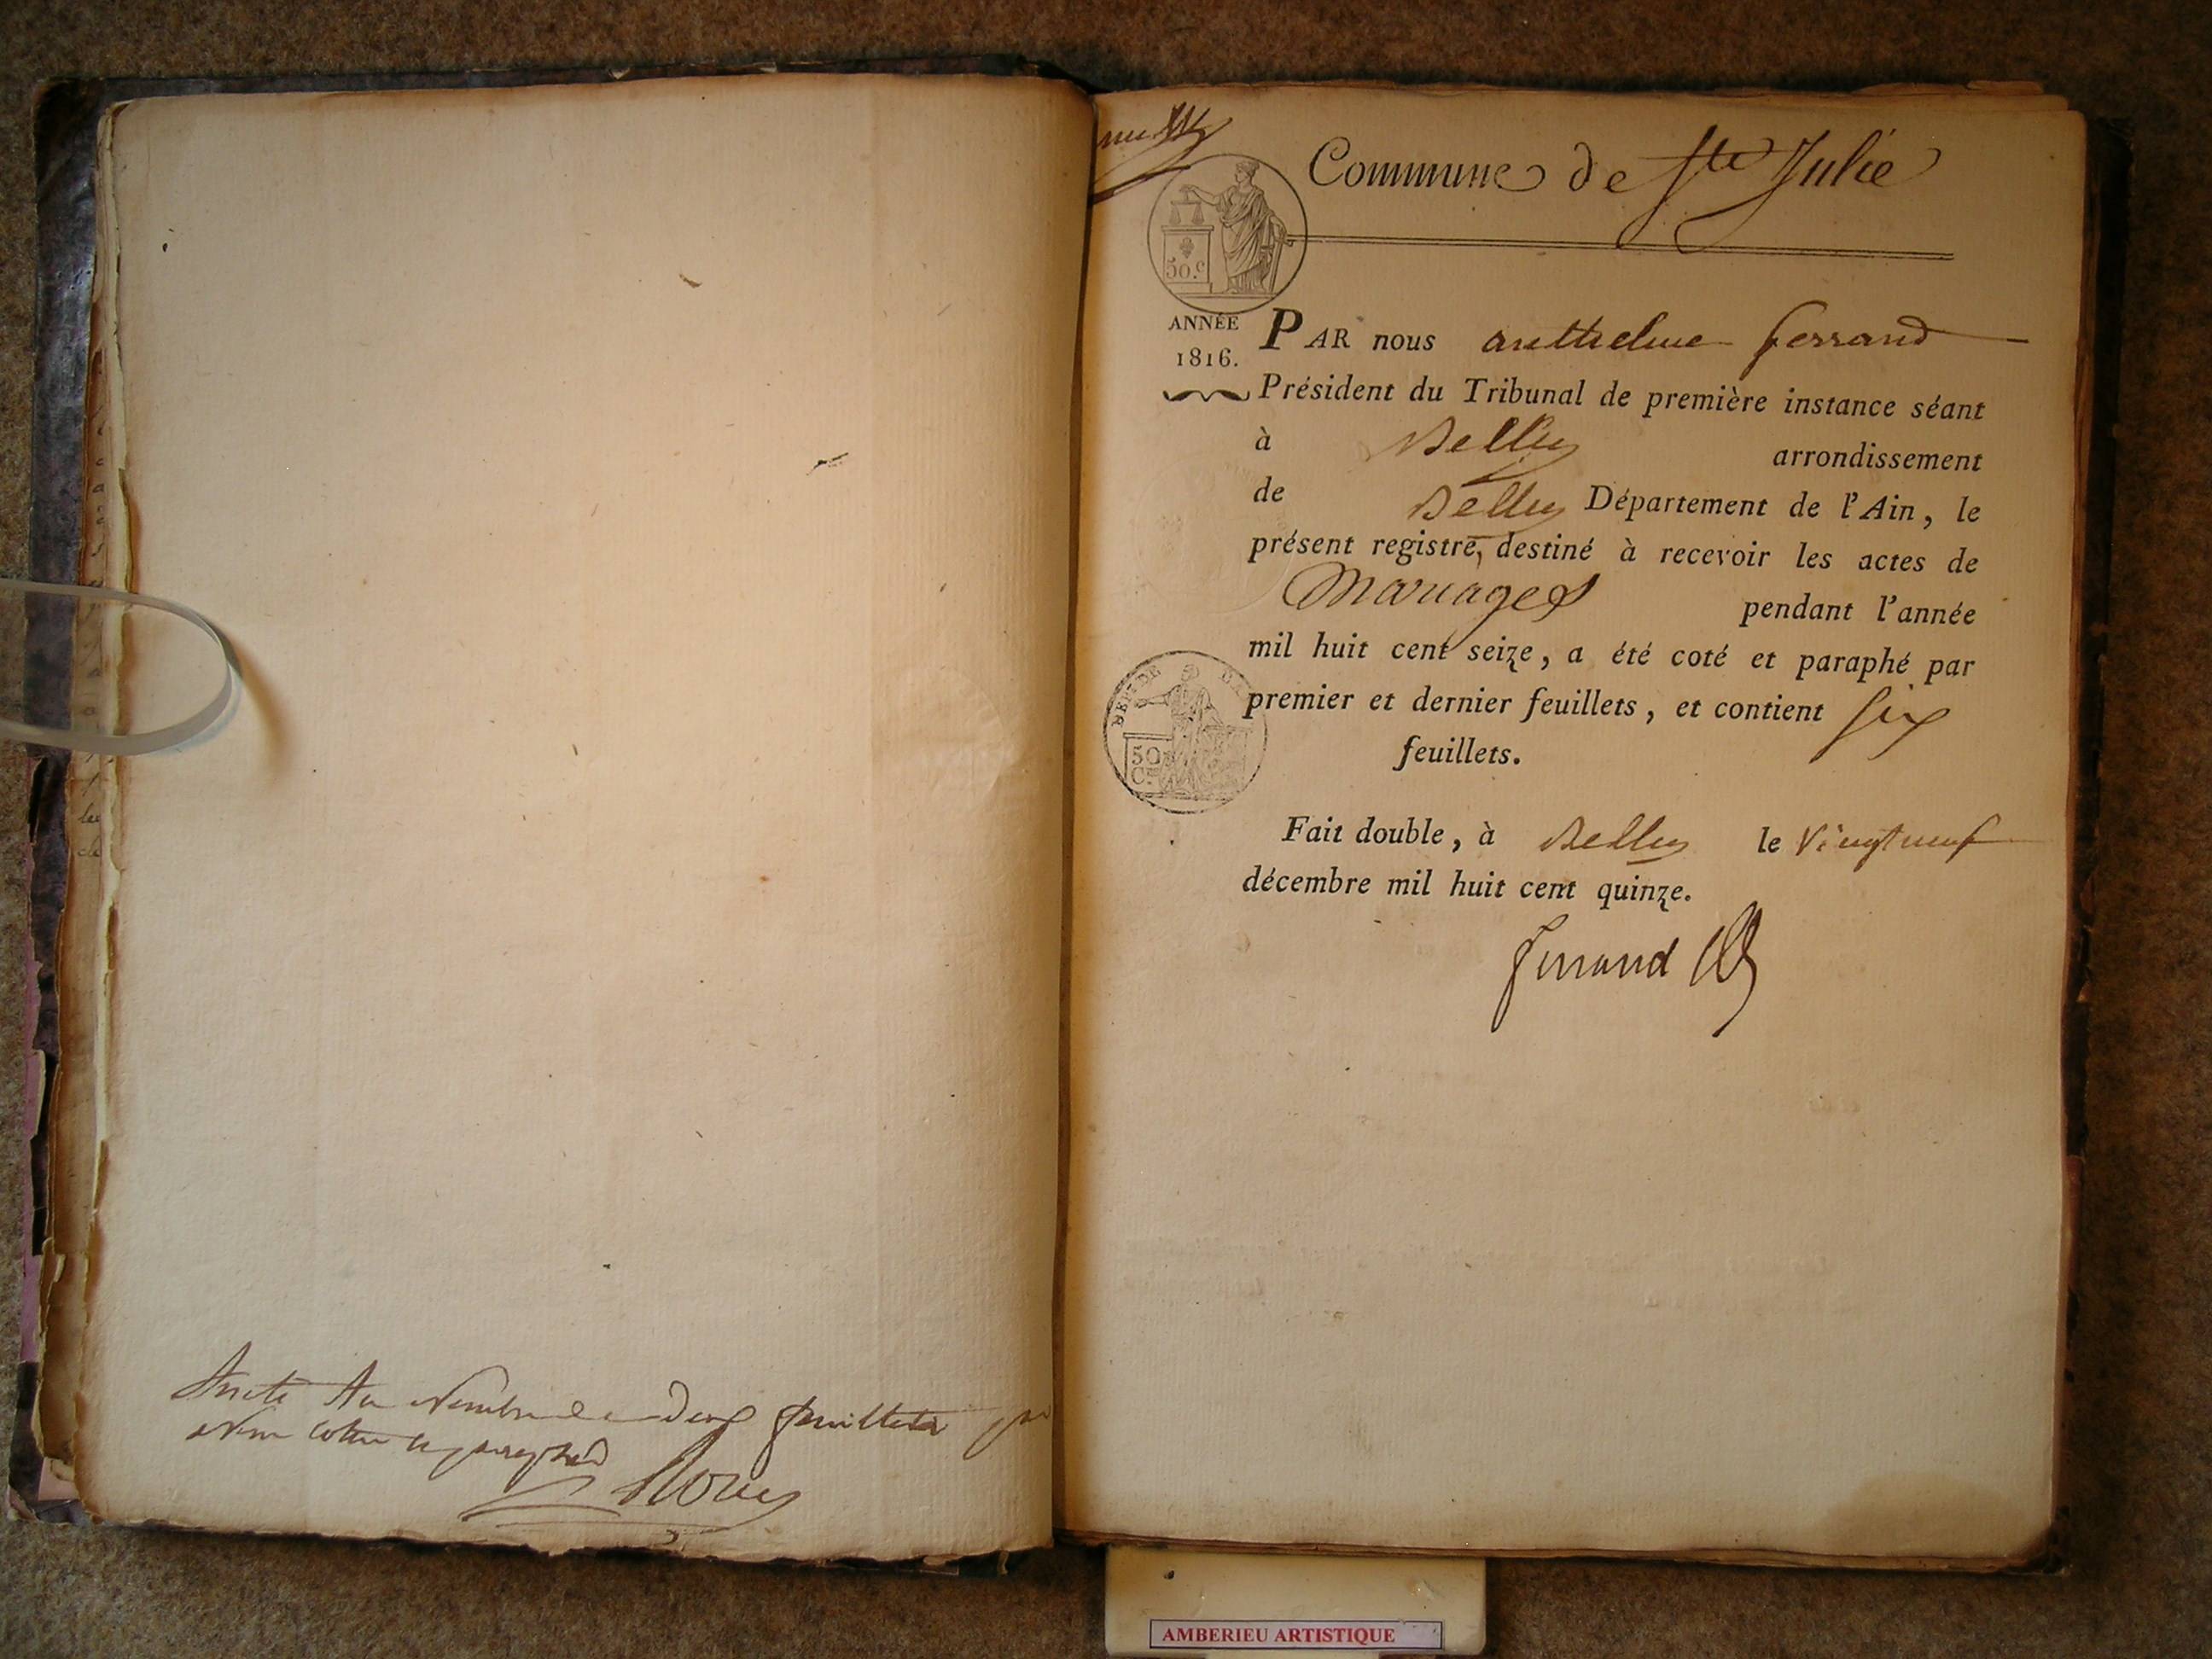 Commune de Ste Julie
50.c
ANNÉE
1816.
PAR nous anthelme ferrand
Président du Tribunal de première instance séant
à Belley arrondissement
de Belley Département de l'Ain, le
présent registre, destiné à recevoir les actes de
Mariages pendant l'année
mil huit cent seize, a été coté et paraphé par
premier et dernier feuillets, et contient six
feuillets.
50
C.
Fait double, à Belley le Vingt neuf
décembre mil huit cent quinze.
ferrand
feuillets
AMBERIEU ARTISTIQUE